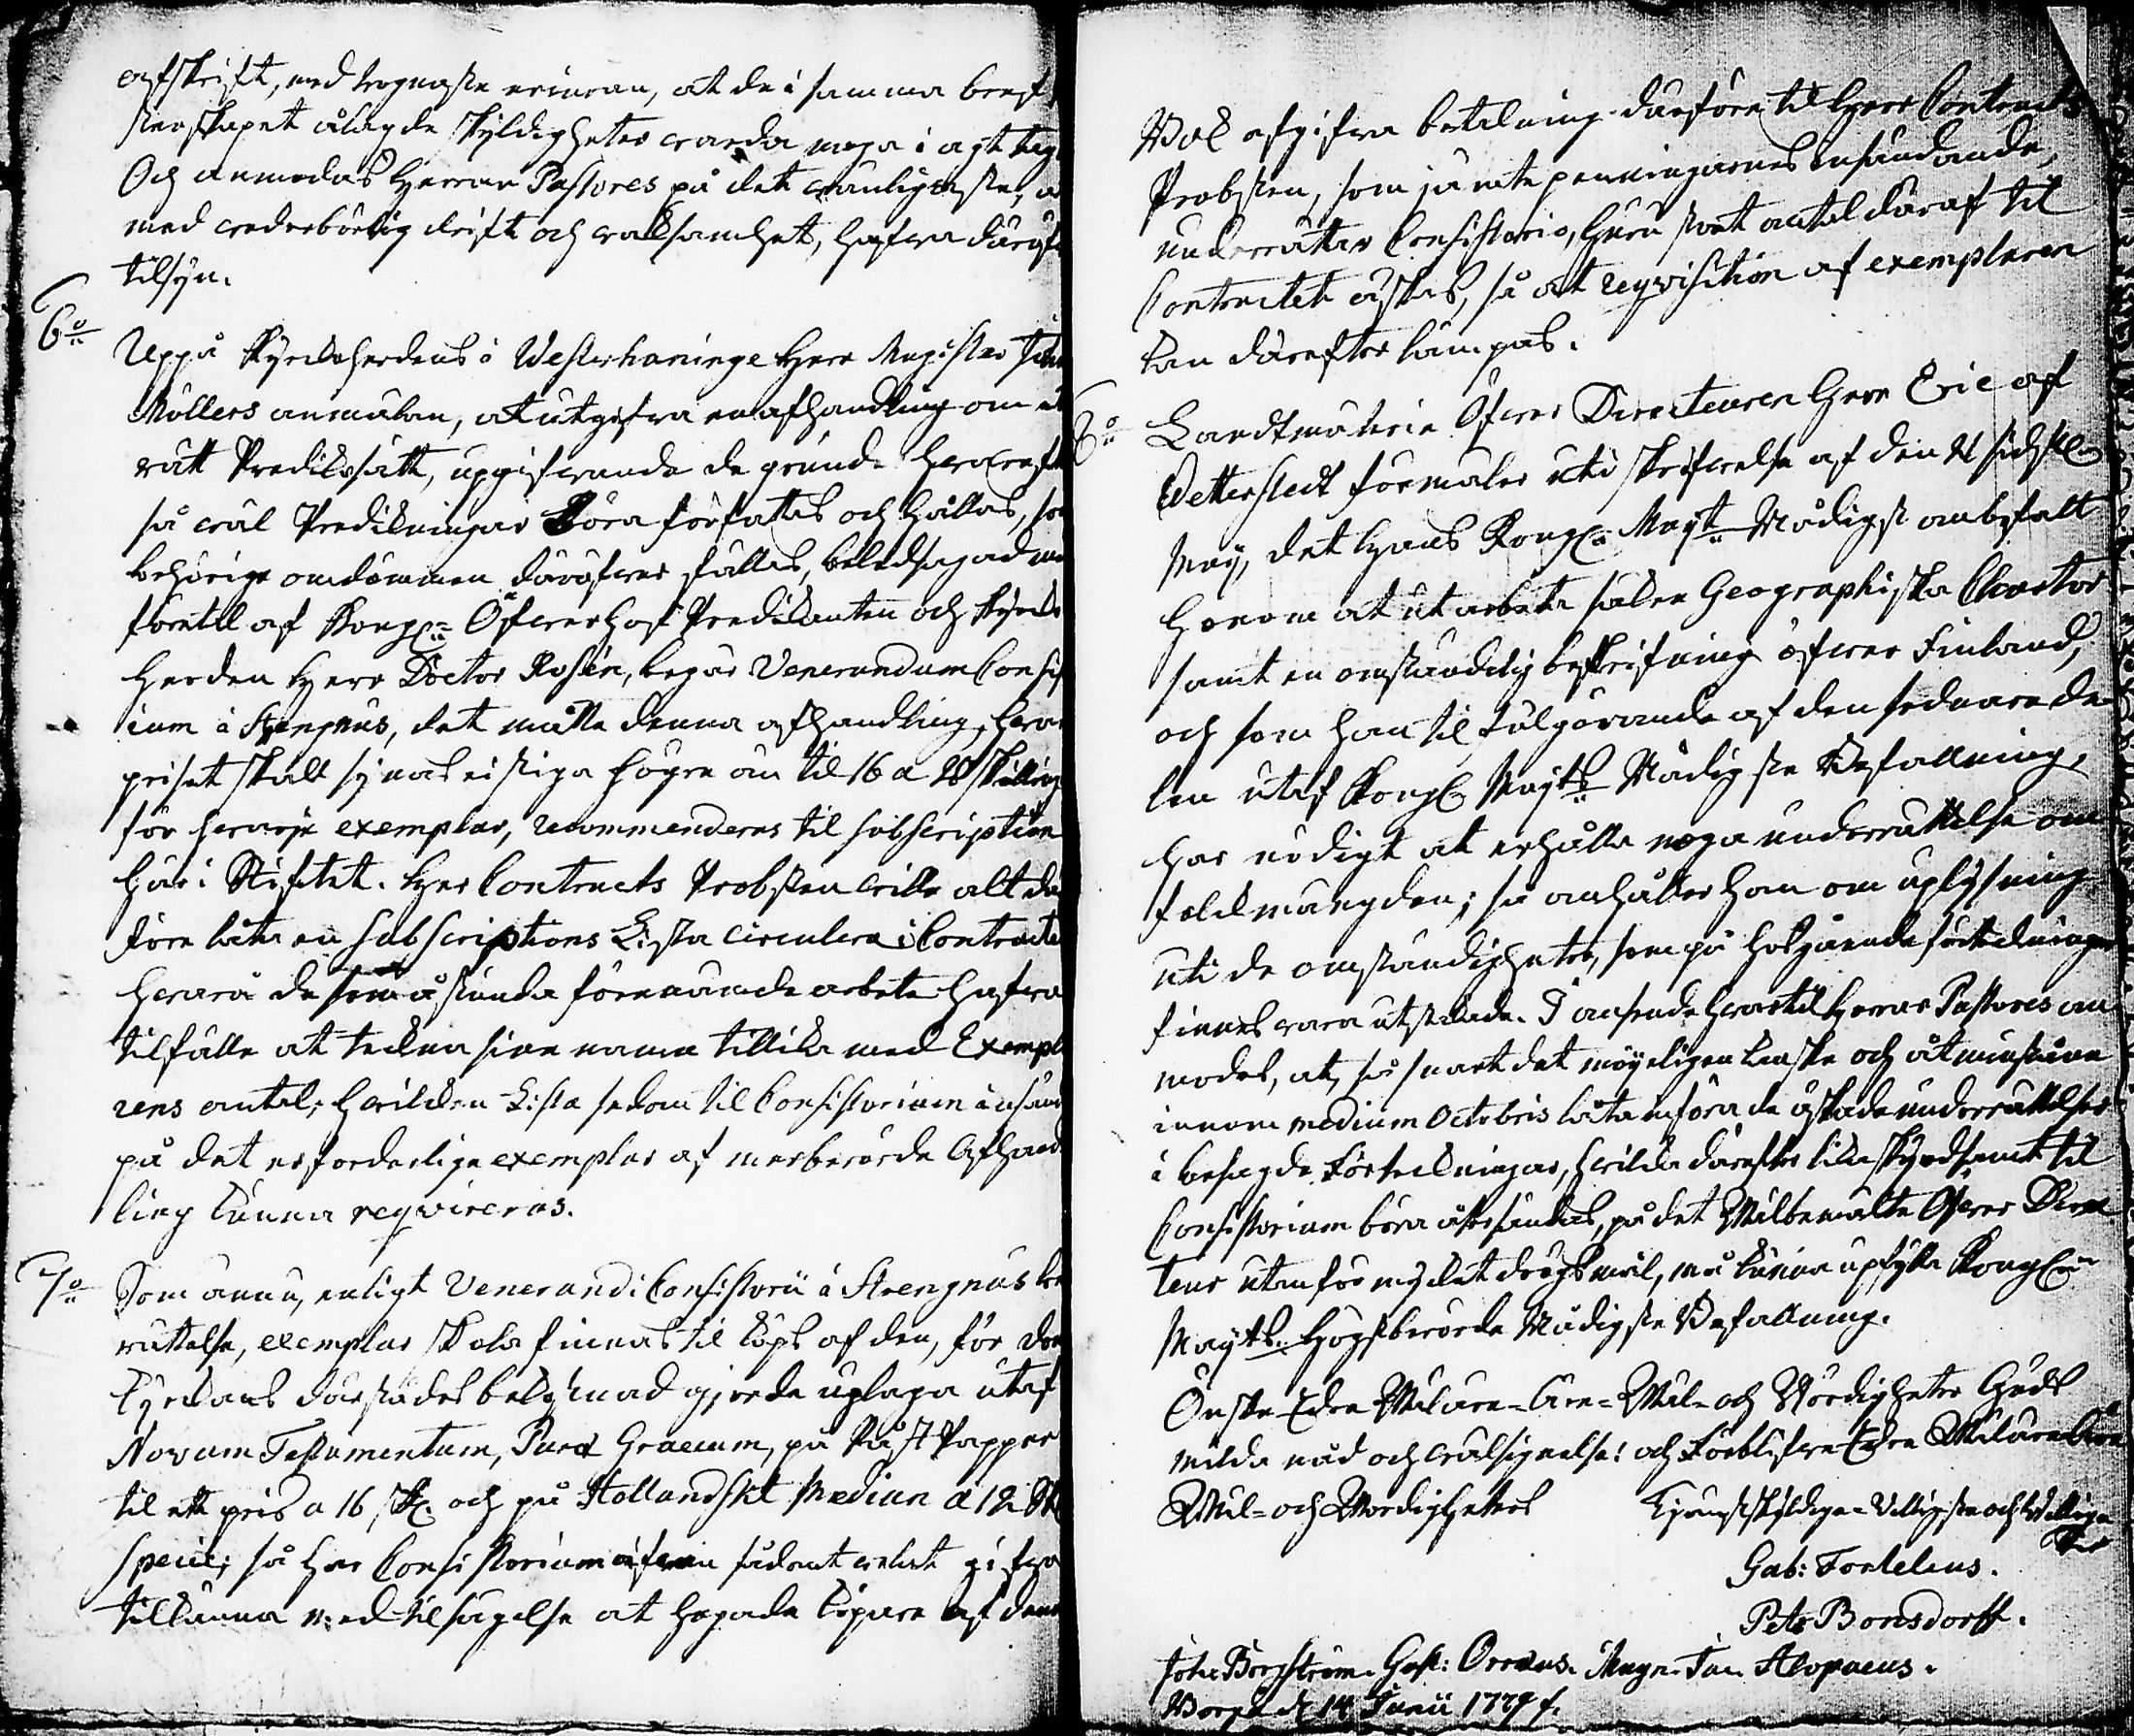 afskrift, med trognaste erinran, at de i samma bref
skapet ålagde skyldigheter warda noga i agt tag
Och anmodas Herrar Pastores på det wänligaste, at
med wederbörlig drift och waksamhet, hafwa däröf
tilsyn.
6:o
Uppå Kyrckoherdens i Westerhaninge Herr Magister Joh
Möllers anmälan, at utgifwa en afhandling om et
rätt Predikosätt, upgifwande de grunder hwarefter
så wäl Predikningar böra författas och hållas, som
behörige omdömmen däröfwer fällas, beledsagad med
företal af Kongl: Öfwerhof Predikanten och Kyrcko
herden Herr Doctor Rosén, begär Venerandum Consis
ium i Strengnäs, det måtte denna afhandling, hwar
priset skall synas ei stiga högre än til 16 a 18 skilling
för hwarje exemplar, recommenderas til subscription
här i Stiftet. Herr Contracts Probsten wille alt der
före låta en subscriptions Lista circulera i Contractet
hwarå de som åstunda förenämnde arbete hafwa
tilfälle at tekna sine namn tillika med Exempla
rens antal; hwilcken Lista sedan til Consistorium insänd
på det erforderlige exemplar af merberörde Afhand
ling kunna reqvireras.
7:o
Som ännu, enligt Venerandi Consistorii i Strengnäs be
rättelse, exemplar skola finnas til köps af den, för Dom
kyrckans därstädes bekostnad gjorde uplaga utaf
Novum Testamentum, Pure Graecum, på Påst Papper
til ett pris a 16 sk: och på Hollandskt Median a 12 Sk
Specie; så har Consistorium äfwen sådant welat gifwa
tillkänna med tilsägelse at hogade köpare af denna
Wal afgifwa betalning därföre til Herr Contracts
Probsten, som jämte penningarnes insändande,
underrättar Consistorio, huru stort antal däraf til
Contractet äskas, så at reqvisition af exemplaren
kan därefter lämpas.
8:o
Landtmäterie Öfwer Directeuren Herr Eric af
Wetterstedt förmäler uti skrifwelse af den 21 sidstl:
Maij, det Hans Kongl: Maij:t Nådigst anbefalt
honom at utarbeta såwäl Geographiska Chartor
samt en omständelig beskrifning öfwer Finland,
och som han til fulgörande af den sednare de
len utaf Kongl: Maij:ts Nådigste Befallning,
har nödigt at erhålla noga underrättelse om
folckmängden; så anhåller han om uplysning
uti de omständigheter, som på hosgående förtekningar
finnas wara utsatade. I anseende hwartil Herrar Pastores an
modas, at, så snart det möyeligen kan ske och åtminstone
innom medium Octobris låta införa de äskade underrättelser
i besagde Förtekningar, hwilcka därefter lika skyndsamt til
Consistorium böra återsändas, på det Wälbemälte Öfwer Direc
teur utan för mycket drögsmål, må kunna upfylla Kongl:
Maij:ts Högstberörde Nådigste Befallning.
Önske Edra Wälärе- Äre- Wäl- och Wördigheter Guds
milda nåd och wälsignelse! och Förblifwe Edra Wälärе Äre
Wäl- och Wördigheters
Tjenstskyldige- Willigste och Willige
Gab: Fortelius.
Petr Bonsdorff.
Joh: Borgström. Gust: Orræus. Magn: Jac. Alopaeus.
Borgå d 14 Junii 1779.